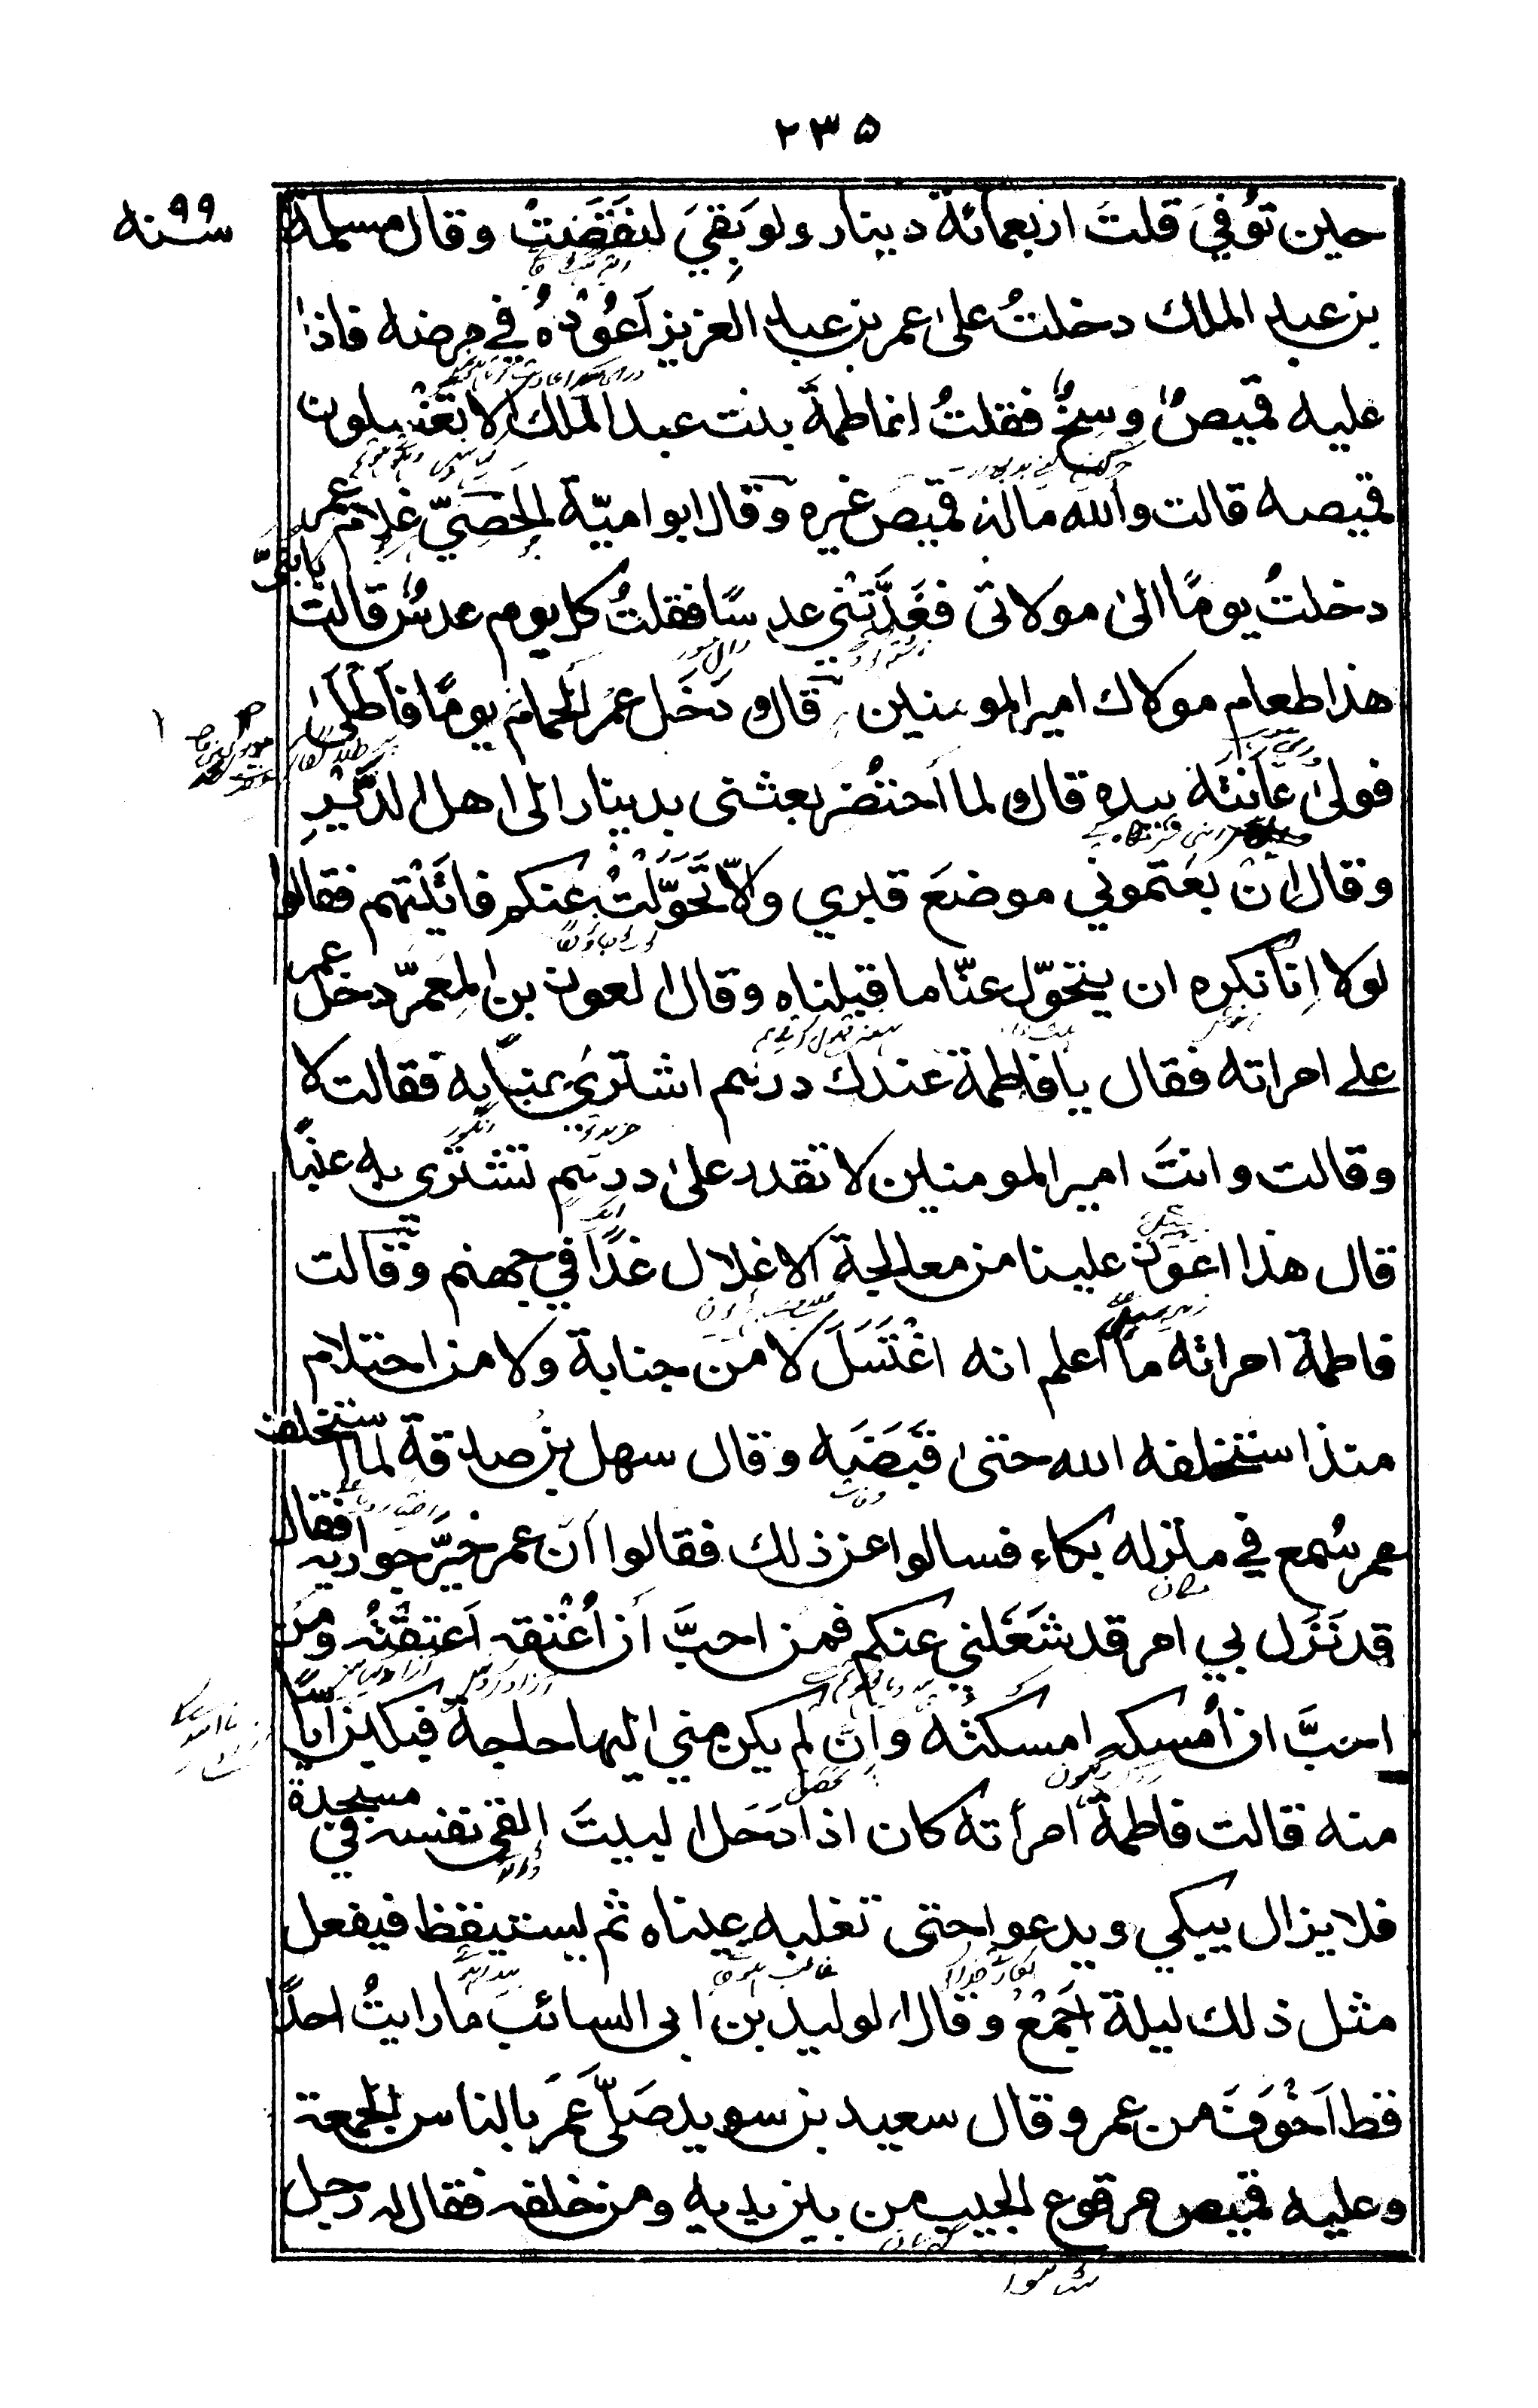 ٢٣٥
سنه ٩٩
حين تُوُفِيَ قلتَ اربعمائة دينار ولو بَقِيَ لنقَصَتْ وقال مسلمة
بن عبد الملك دخلتُ على عمر بن عبد العزيز اَعُوْدُهُ في مرضه فاذا
عليه قميصٌ وسِخٌ فقلتُ لفاطمةَ بنت عبد الملك الا تغْسِلون
قميصه قالت والله ماله قميص غيره وقال ابو اميّة الخَصِيّ غلام عمر
دخلتُ يومًا الى مولاتى فغَدَّتْنى عدسًا فقلتُ كل يوم عدسٌ قالت يا بنىّ
هذا طعام مولاك امير المومنين قال ودَخَل عمر الحمام يومًا فاَطلىٰ
فولى عَانَتَه بيده قال ولما اُحتُضِر بعثنى بدينار الى اهل الدَّيْرِ
وقال ان بعتمونِي موضعَ قبري والّا تَحَوَّلْتُ عنكم فاتَيْتهم فقالوا
لولا انا نكره ان يتحوّل عنّا ما قبلناه وقال العون بن المعمّر دخل عمر
على امراته فقال يا فاطمة عندك درهم اشتري عنبًا به فقالت لا
وقالت وانتَ امير المومنين لا تقدر على درهم تشتري به عنبًا
قال هذا اهون علينا من معالجة الاغلال غدًا في جهنم وقالت
فاطمة امراته ما اعلم انه اغْتَسَلَ لا من جنابة ولا من احتلام
منذ استخلفه الله حتى قبَضَه وقال سهل بن صدقة لما استخلف
عمر سُمع في منزله بكاء فسالوا عن ذلك فقالوا انّ عمر خيَّر جواريه فقال
قد نَزَل بي امر قد شَغَلني عنكم فمن احبَّ ان اُعْتقه اَعتقتُه ومن
احبَّ ان اُمسكه امسكتُه وان لم يكن مني اليها حاجة فبكين اياسًا
منه قالت فاطمة امرأته كان اذا دَخَل البيتَ القى نفسه في مسجدة
فلا يزال يبكي ويدعوا حتى تغلبه عيناه ثم يستيقظ فيفعل
مثل ذلك ليلة اَجْمَعُ وقال الوليد بن ابى السائب ما رايتُ احدًا
قط اَخْوَفَ من عمر وقال سعيد بن سويد صَلّى عمَر بالناس الجمعة
وعليه قميص مرقوع الجيب من بين يديه ومن خلفه فقال له رجل